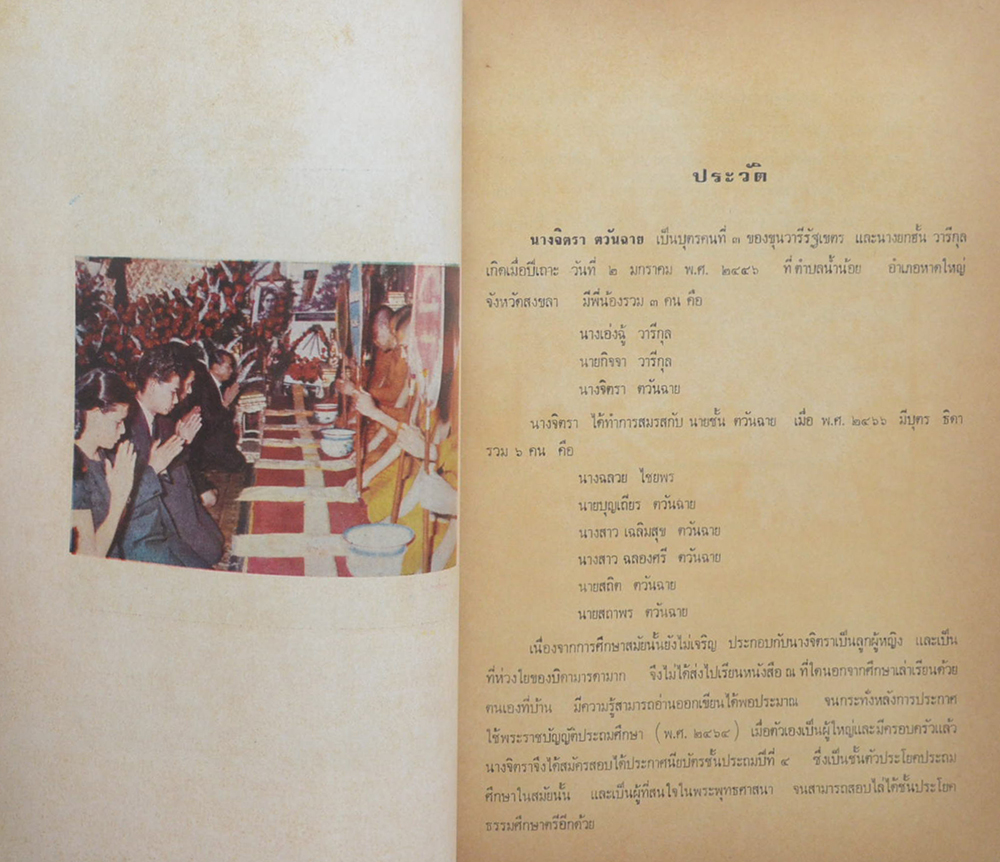 ประวัติ
นางจิตรา ตวันฉาย เป็นบุตรคนที่ ๓ ของขุนวารีรัฐเขตร และนางยกฮั้น วารีกุล
เกิดเมื่อปีเถาะ วันที่ ๒ มกราคม พ.ศ. ๒๔๔๖ ที่ตำบลน้ำน้อย อำเภอหาดใหญ่
จังหวัดสงขลา มีพี่น้องรวม ๓ คน คือ
นางเอ่งฉู้ วารีกุล
นายกิจจา วารีกุล
นางจิตรา ตวันฉาย
นางจิตรา ได้ทำการสมรสกับ นายชั้น ตวันฉาย เมื่อ พ.ศ. ๒๔๖๖ มีบุตร ธิดา
รวม ๖ คน คือ
นางฉลวย ไชยพร
นายบุญเถียร ตวันฉาย
นางสาว เฉลิมสุข ตวันฉาย
นางสาว ฉลองศรี ตวันฉาย
นายสถิต ตวันฉาย
นายสถาพร ตวันฉาย
เนื่องจากการศึกษาสมัยนั้นยังไม่เจริญ ประกอบกับนางจิตราเป็นลูกผู้หญิง และเป็น
ที่ห่วงใยของบิดามารดามาก จึงไม่ได้ส่งไปเรียนหนังสือ ณ ที่ใดนอกจากศึกษาเล่าเรียนด้วย
ตนเองที่บ้าน มีความรู้สามารถอ่านออกเขียนได้พอประมาณ จนกระทั่งหลังการประกาศ
ใช้พระราชบัญญัติประถมศึกษา (พ.ศ. ๒๔๖๔) เมื่อตัวเองเป็นผู้ใหญ่และมีครอบครัวแล้ว
นางจิตราจึงได้สมัครสอบได้ประกาศนียบัตรชั้นประถมปีที่ ๔ ซึ่งเป็นชั้นตัวประโยคประถม
ศึกษาในสมัยนั้น และเป็นผู้ที่สนใจในพระพุทธศาสนา จนสามารถสอบไล่ได้ชั้นประโยค
ธรรมศึกษาตรีอีกด้วย